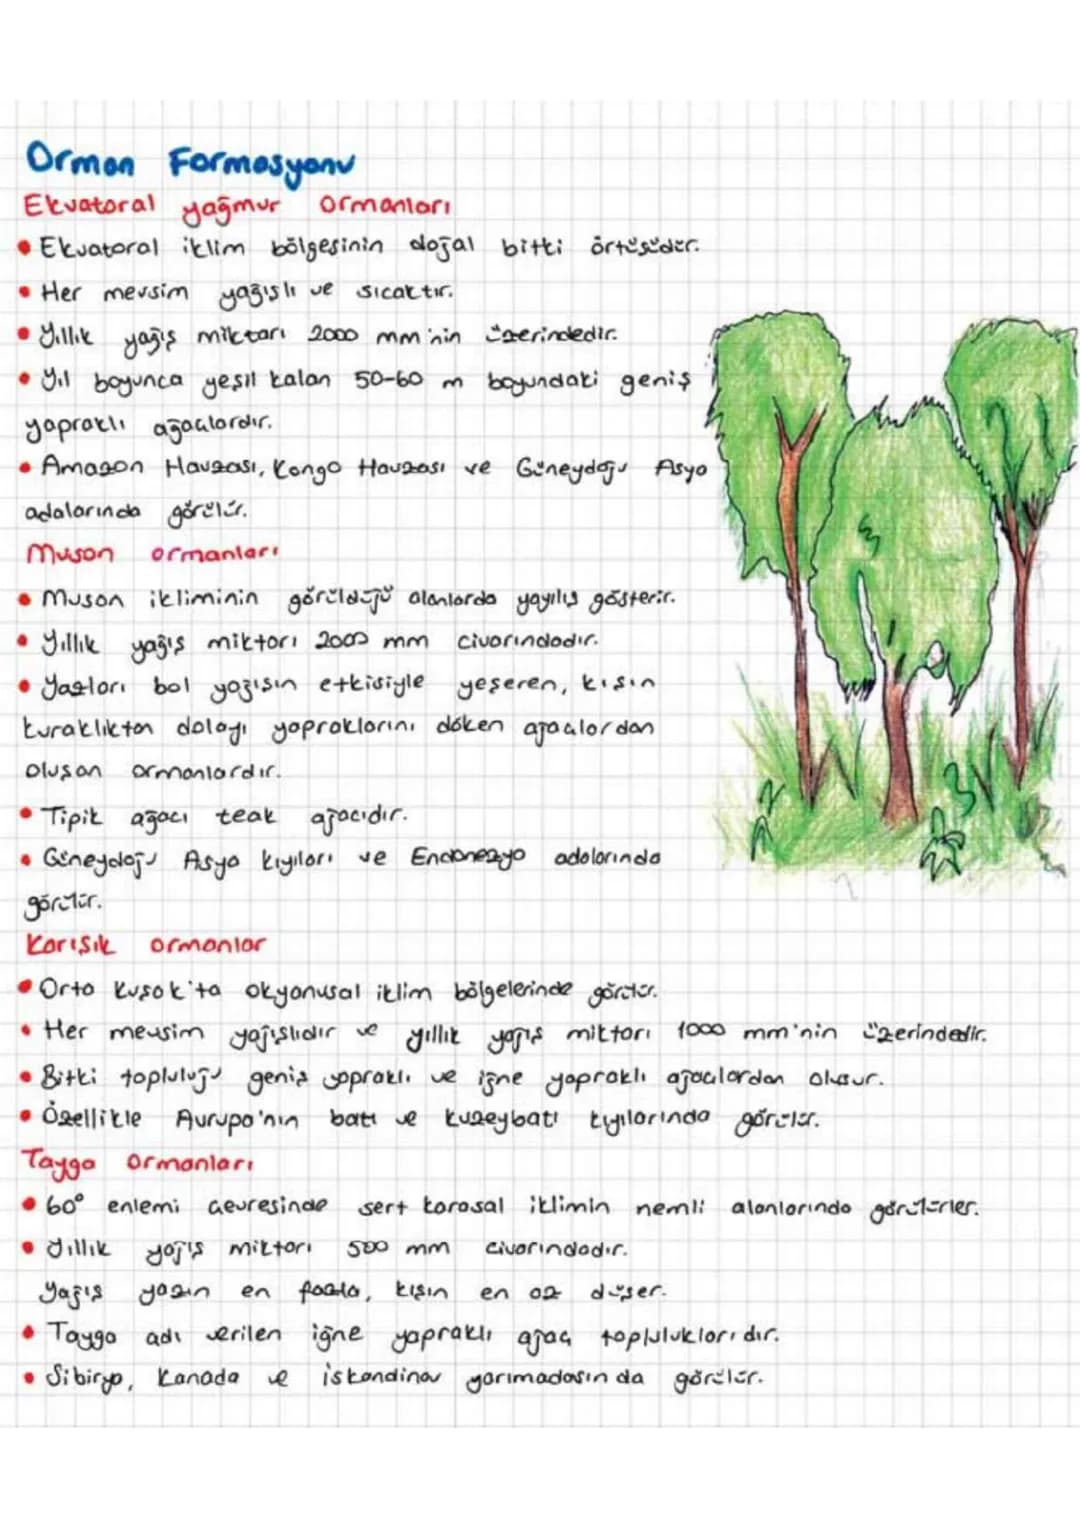 Orman Formasyonu
Ekvatoral yağmur ormanları
• Ekvatoral iklim bölgesinin doğal bitki örtüsüdür.
• Her mevsim yağışlı ve sıcaktır.
• Yıllık yağış miktarı 2000 mm'nin üzerindedir.
• Yıl boyunca yeşil kalan 50-60 m boyundaki geniş
yapraklı ağaçlardır.
• Amazon Havzası, Kongo Havzası ve Güneydoğu Asya
adalarında görülür.
Muson ormanları
• Muson ikliminin görüldüğü alanlarda yayılış gösterir.
• Yıllık yağış miktarı 2000 mm civarındadır.
• Yazları bol yağışın etkisiyle yeşeren, kışın
kuraklıktan dolayı yapraklarını döken ağaçlardan
oluşan ormanlardır.
• Tipik ağacı teak ağacıdır.
• Güneydoğu Asya kıyıları ve Endonezya adalarında
görülür.
Karışık ormanlar
• Orta Kuşak'ta okyanusal iklim bölgelerinde görülür.
• Her mevsim yağışlıdır ve yıllık yağış miktarı 1000 mm'nin üzerindedir.
• Bitki topluluğu geniş yapraklı ve iğne yapraklı ağaçlardan oluşur.
• Özellikle Avrupa'nın batı ve kuzeybatı kıyılarında görülür.
Tayga Ormanları
• 60° enlemi çevresinde sert karasal iklimin nemli alanlarında görülürler.
• Yıllık yağış miktarı 500 mm civarındadır.
Yağış yazın en fazla, kışın en az düşer.
• Tayga adı verilen iğne yapraklı ağaç topluluklarıdır.
• Sibirya, Kanada ve İskandinav yarımadasında görülür.